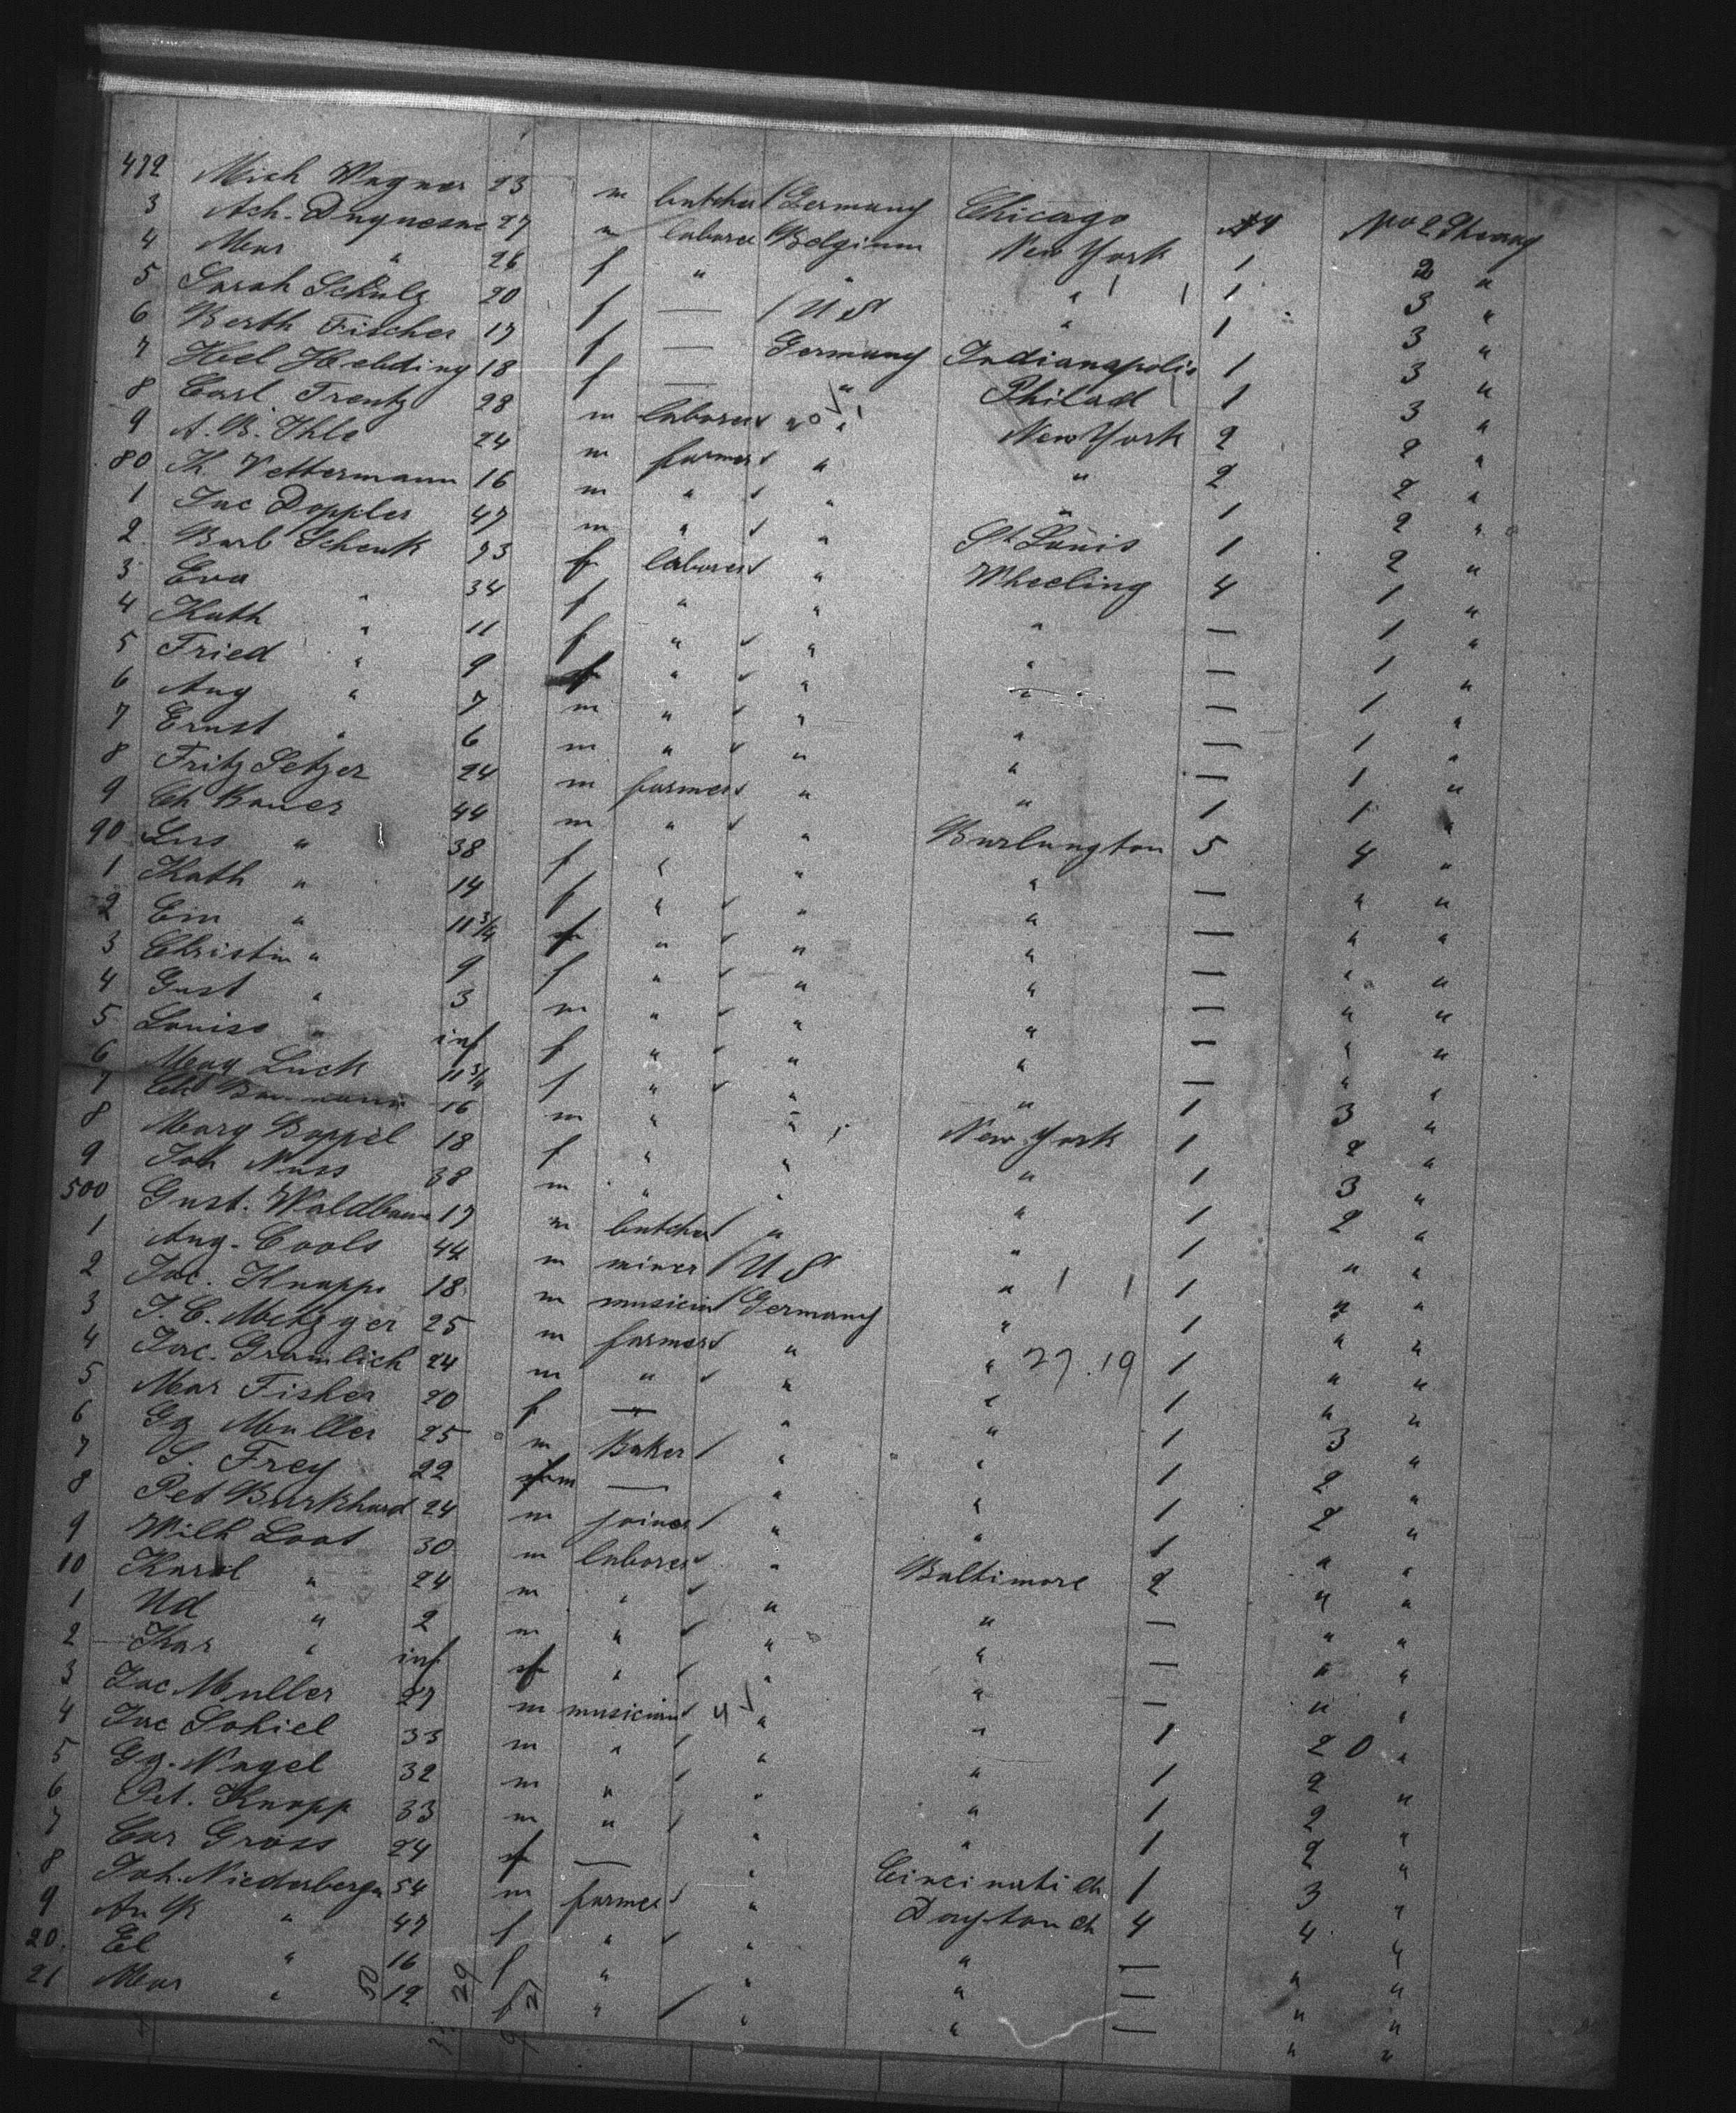 472 Mich Wagner 23 m butcher / Germany Chicago No 2 Steerag
3 Ach. Duquesne 27 m laborer Belgium New York 1 2 "
4 Mar " 26 f " " " 1 3 "
5 Sarah Schulz 20 f — / U S " 1 3 "
6 Berth Fischer 17 f — Germany Indianapolis 1 3 "
7 Hel Hebding 18 f — " Philad 1 3 "
8 Carl Trentz 28 m laborer " New York 2 2 "
9 A. B. Ihle 24 m farmer " " 2 2 "
80 Th Vettermann 16 m " " " 1 2 "
1 Jac Doppler 47 m " " St Louis 1 2 "
2 Barb Schenk 73 f laborer " Wheeling 4 1 "
3 Eva " 34 f " " " — 1 "
4 Kath " 11 f " " " — 1 "
5 Fried " 9 f " " " — 1 "
6 Aug " 7 m " " " — 1 "
7 Ernst " 6 m " " " — 1 "
8 Fritz Setzer 24 m farmer " " 1 1 "
9 Ch Bauer 44 m " " Burlungton 5 4 "
90 Lus " 38 f " " " — " "
1 Kath " 14 f " " " — " "
2 Em " 11 3/4 f " " " — " "
3 Christin " 9 f " " " — " "
4 Gust " 3 m " " " — " "
5 Louise " inf f " " " — " "
6 Mag Luck 11 3/4 f " " " 1 3 "
7 16 m " " New York 1 2 "
8 Mary Boppel 18 f " " " 1 3 "
9 Joh Nuss 38 m " " " 1 2 "
500 Gust. Waldbaum 17 m butcher / " " 1 " "
1 Aug. Cools 44 m miner / U S " 1 " "
2 Jac. Knapp 18 m musician / Germany " 1 " "
3 J. C. Metzger 25 m farmer " " 27.19 1 " "
4 Jac. Gramlich 24 m " " " 1 " "
5 Mar Fisher 20 f — " " 1 3 "
6 Gg Muller 25 m Baker / " " 1 2 "
7 S. Frey 22 m — " " 1 2 "
8 Pet Burkhard 24 m joiner / " " 1 " "
9 Wilh Loot 30 m laborer " Baltimore 2 " "
10 Karol " 24 m " " " — " "
1 Ud " 2 m " " " — " "
2 Kar " inf f " " " — " "
3 Jac Muller 27 m musician " " 1 2 0 "
4 Jac Sohiel 33 m " " " 1 2 "
5 Gg. Nagel 32 m " " " 1 2 "
6 Pet. Knapp 33 m " " " 1 2 "
7 Car Gross 24 f — " Cincinati Oh 1 3 "
8 Joh. Niederberger 54 m farmer " Dayton Oh 4 4 "
9 An B " 47 f " " " — " "
20. El " 16 f " " " — " "
21 Mar " 50 12 29 f 21 " / " " — " "